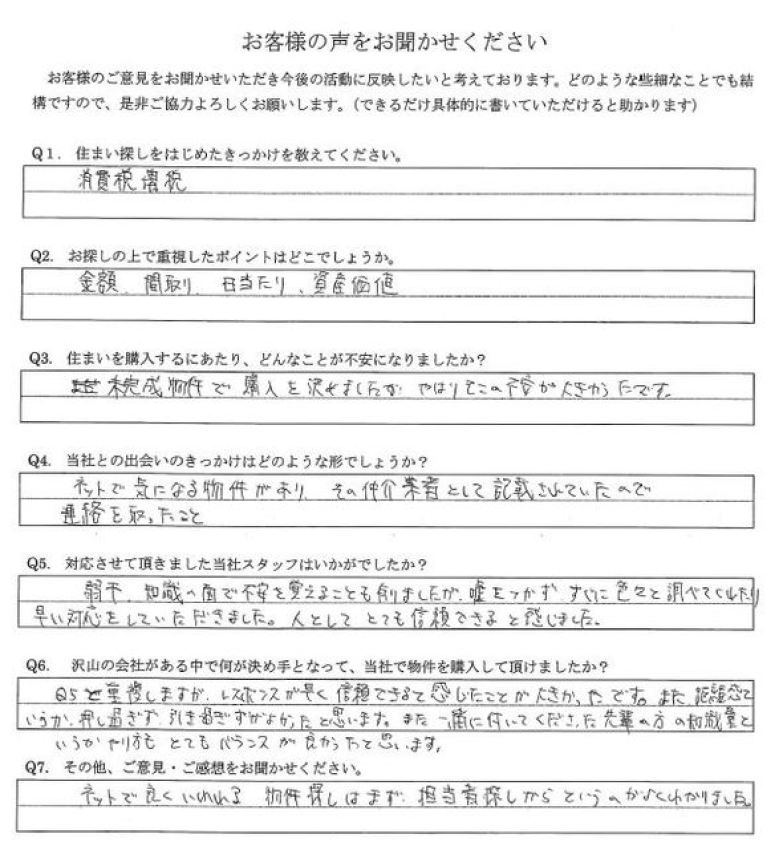 お客様の声をお聞かせください
お客様のご意見をお聞かせいただき今後の活動に反映したいと考えております。どのような些細なことでも結
構ですので、是非ご協力よろしくお願いします。（できるだけ具体的に書いていただけると助かります）
Q1. 住まい探しをはじめたきっかけを教えてください。
消費税増税
Q2. お探しの上で重視したポイントはどこでしょうか。
金額、間取り、日当たり、資産価値
Q3. 住まいを購入するにあたり、どんなことが不安になりましたか？
未完成物件で購入を決めましたが やはりそこの不安が大きかったです。
Q4. 当社との出会いのきっかけはどのような形でしょうか？
ネットで気になる物件があり その仲介業者として記載されていたので
連絡を取ったこと
Q5. 対応させて頂きました当社スタッフはいかがでしたか？
若干、知識の面で不安を覚えることも有りましたが、嘘をつかず すぐに色々と調べてくれたり
早い対応をしていただきました。人として とても信頼できると感じました。
Q6. 沢山の会社がある中で何が決め手となって、当社で物件を購入して頂けましたか？
Q5と重複しますが、レスポンスが早く信頼できるて感じたことが大きかったです。また、距離感て
いうか、押し過ぎず、引き過ぎずがよかったと思います。また一緒に付いてくださった先輩の方の知識量と
いうか やり方も とてもバランスが良かったと思います。
Q7. その他、ご意見・ご感想をお聞かせください。
ネットで良くいわれる 物件探しはまず、担当者探しからというのがよくわかりました。